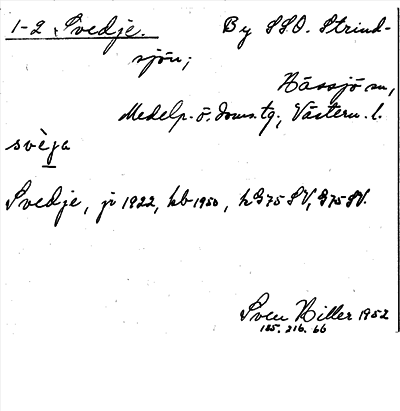 1-2 Svedje. By SSO. Strind-
sjön;
Hässjö sn,
Medelp. ö. doms. tg., Västern. l.
svèga
Svedje, ji 1922, kb 1950, hG75SV, G75SV.
Sven Hiller 1952
185. 216. 66